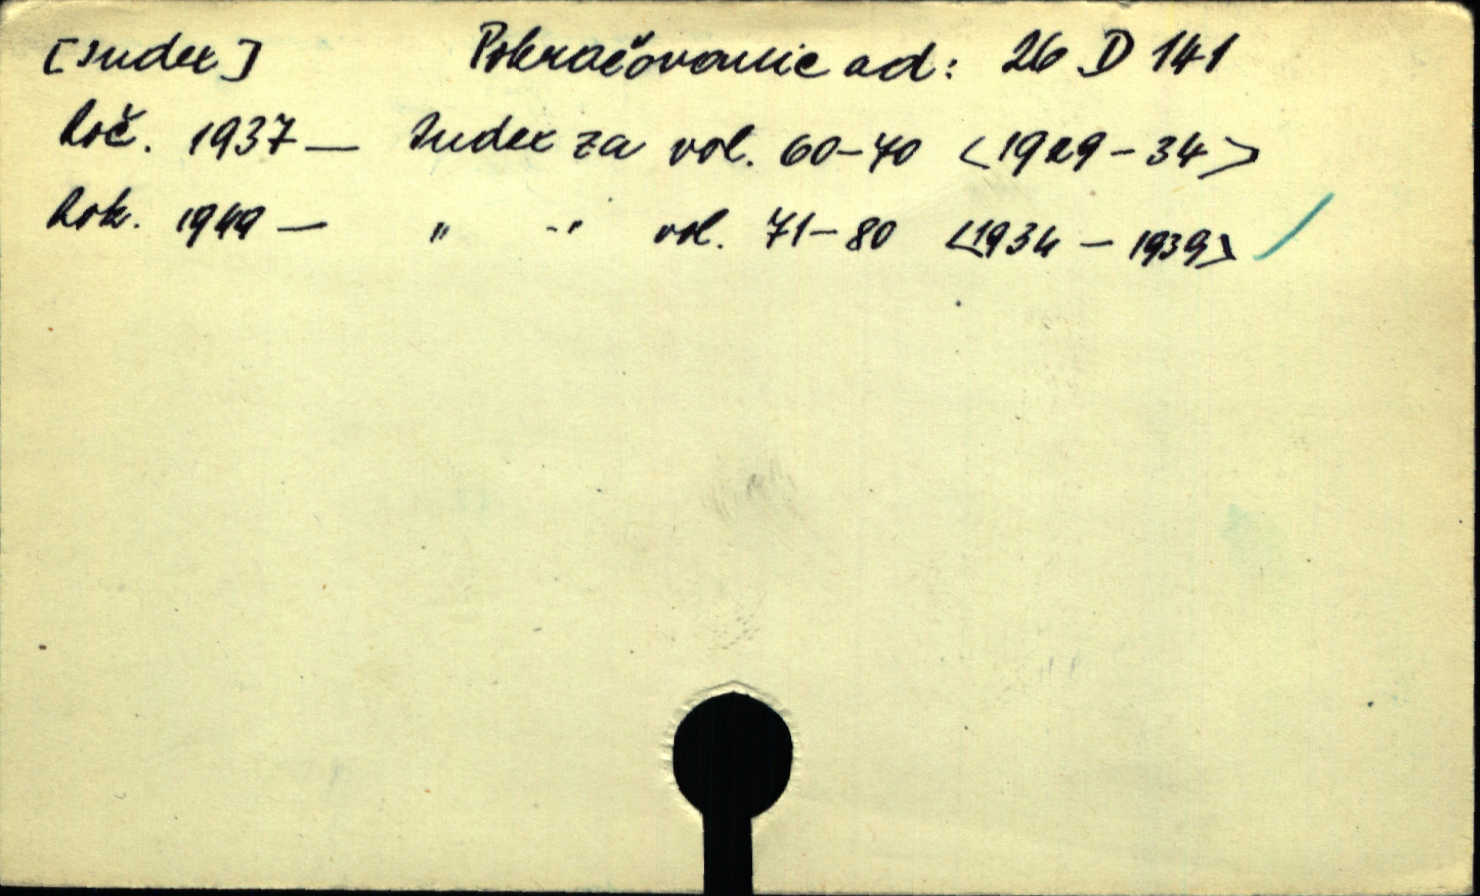 [Index] Pokračovanie ad: 26 D 141
Roč. 1937 — Index za vol. 60-70 <1929-34>
Rok. 1949 — " -"- vol. 71-80 <1934 - 1939>